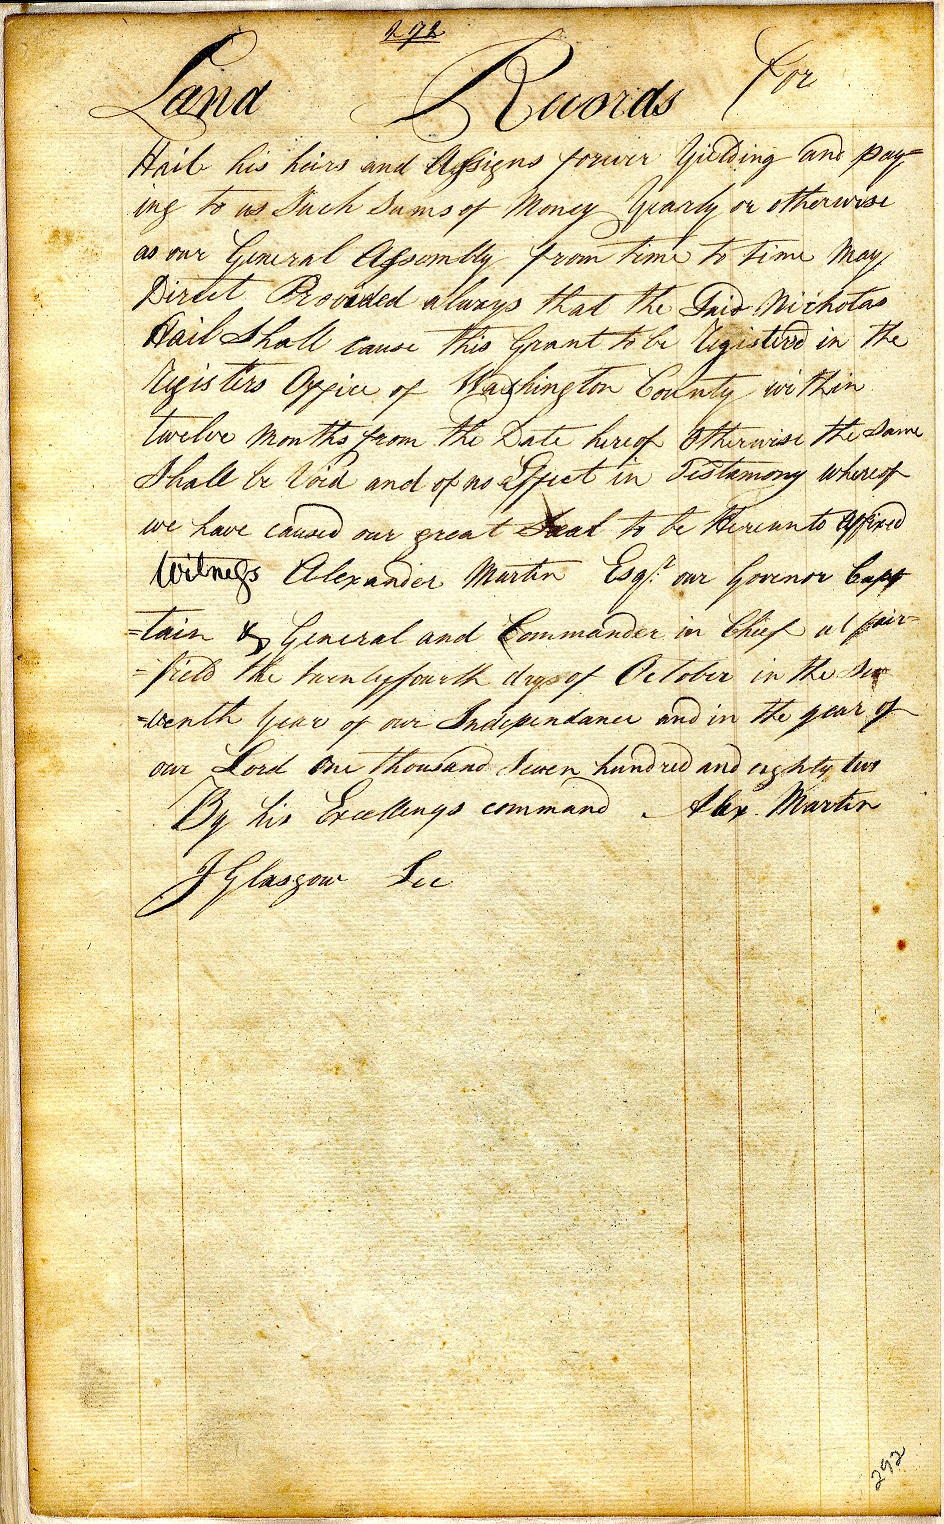 292
Land Records for
Hail his heirs and Assigns forever Yielding and pay=
ing to us Such Sums of Money Yearly or otherwise
as our General Assembly from time to time May
Direct Provided always that the Said Nicholas
Hail Shall cause this Grant to be Registerd in the
Registers Office of Washington County within
twelve Months from the Date hereof Otherwise the Same
Shall be Void and of no Effect in Testamony whereof
we have caused our great Seal to be Hereunto Affixed
Witness Alexander Martin Esqr. our Govenor Cap
=tain & General and Commander in Chief at fair=
=field the twentyfourth days of October in the Se
=venth Year of our Independance and in the year of
our Lord One thousand Seven hundred and eighty two
By his Excellengs command Alex. Martin
J Glasgow Sec
292